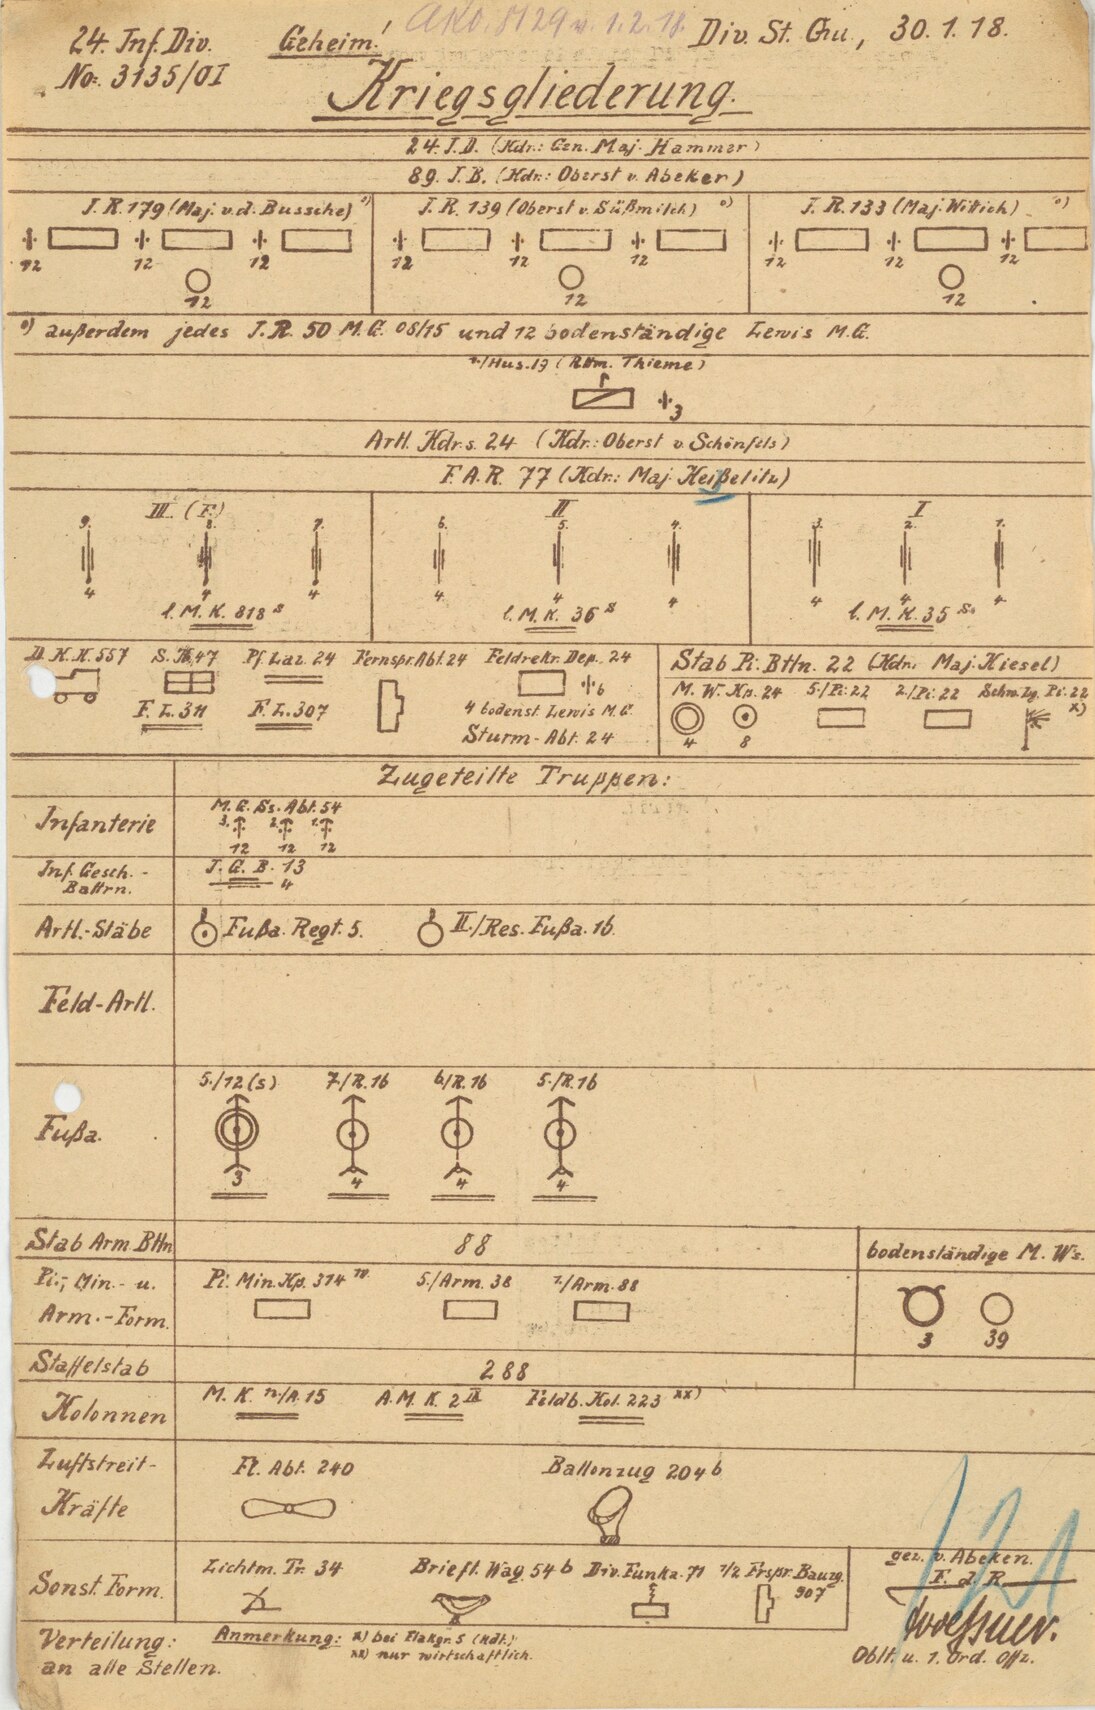 A.K.O. 8129 v. 1.2.18.
24. Inf. Div. Geheim! Div. St. Qu., 30.1.18.
No: 3135/OI
Kriegsgliederung.
24. I.D. (Kdr: Gen. Maj. Hammer)
89. I.B. (Kdr: Oberst v. Abeker)
I.R. 179 (Maj. v.d. Bussche) °) I.R. 139 (Oberst v. Süßmilch) °) I.R. 133 (Maj. Wittich) °)
12 12 12 12 12 12 12 12 12
12 12 12
°) außerdem jedes I.R. 50 M.G. 08/15 und 12 bodenständige Lewis M.G.
/Hus. 19 (Rttm. Thieme)
3
Artl. Kdr. s. 24 (Kdr: Oberst v. Schönfels)
F.A.R. 77 (Kdr: Maj. Keißelitz)
III. (F.) II I
9. 8. 7. 6. 5. 4. 3. 2. 1.
4 4 4 4 4 4 4 4 4
l. M. K. 818 s l. M. K. 36 s l. M. K. 35 s.
D.K.K. 557 S.K. 47 Pf. Laz. 24 Fernspr. Abt. 24 Feldrekr. Dep. 24
6
F.L. 311 F.L. 307 4 bodenst. Lewis M.G.
Sturm-Abt. 24
Stab Pi. Bttn. 22 (Kdr. Maj. Kiesel)
M.W. Kp. 24 5./Pi. 22 2./Pi. 22 Schw. Zg. Pi. 22 x)
4 8
Zugeteilte Truppen:
Infanterie M.G. Ss. Abt. 54
3. 2. 1.
12 12 12
Inf. Gesch.- Battrn. I.G.B. 13
4
Artl.-Stäbe Fußa. Regt. 5. II./Res. Fußa. 16.
Feld-Artl.
Fußa. 5./12 (s) 7./R. 16 6./R. 16 5./R. 16
3 4 4 4
Stab Arm. Bttn 88 bodenständige M.Ws.
Pi.-, Min.- u. Pi. Min. Kp. 314 5./Arm. 38 /Arm. 88
Arm.-Form. 3 39
Staffelstab 288
Kolonnen M.K. /A. 15 A.M.K. 2 II Feldb. Kol. 223 xx)
Luftstreit- Fl. Abt. 240 Ballonzug 204 b
Kräfte
Sonst. Form. Lichtm. Tr. 34 Brieft. Wag 54 b Div. Funka. 71 1/2 Frspr. Bauzg. 907
gez. v. Abeken.
F. d. R.
Verteilung: Anmerkung: x) bei Flakgr. S (Kdt.)
an alle Stellen. xx) nur wirtschaftlich.
Oblt. u. 1. Ord. Offz.